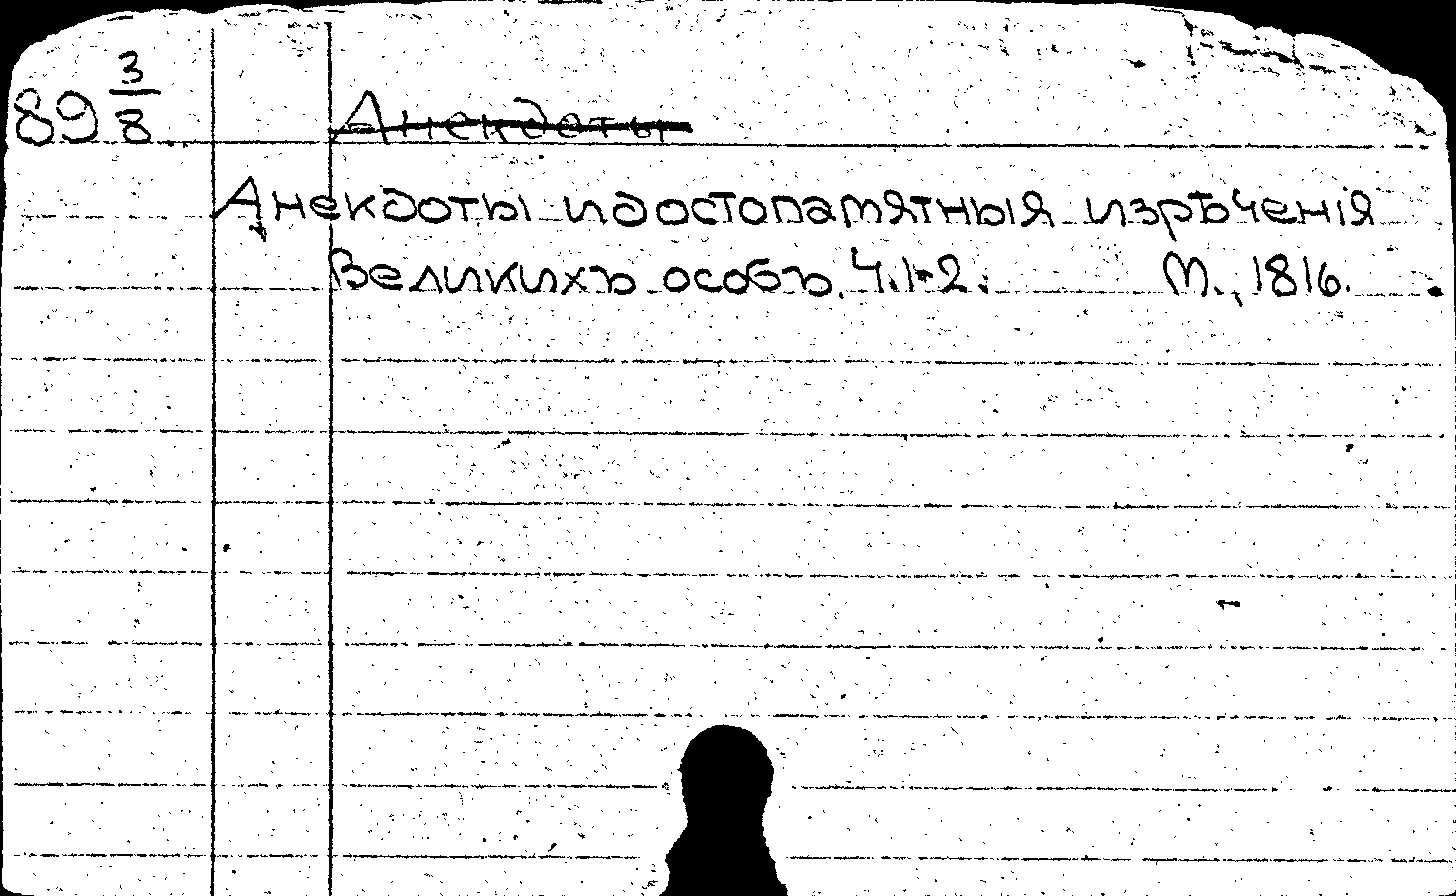 89 3/8
Анекдоты
Анекдоты и достопамятныя изрѣченія
Великихъ особъ. Ч.1-2. М., 1816.